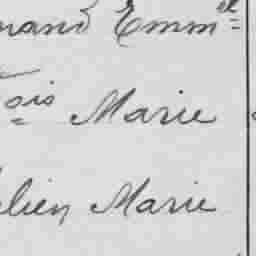 mand Emm.el
Fois Marie
lien Marie